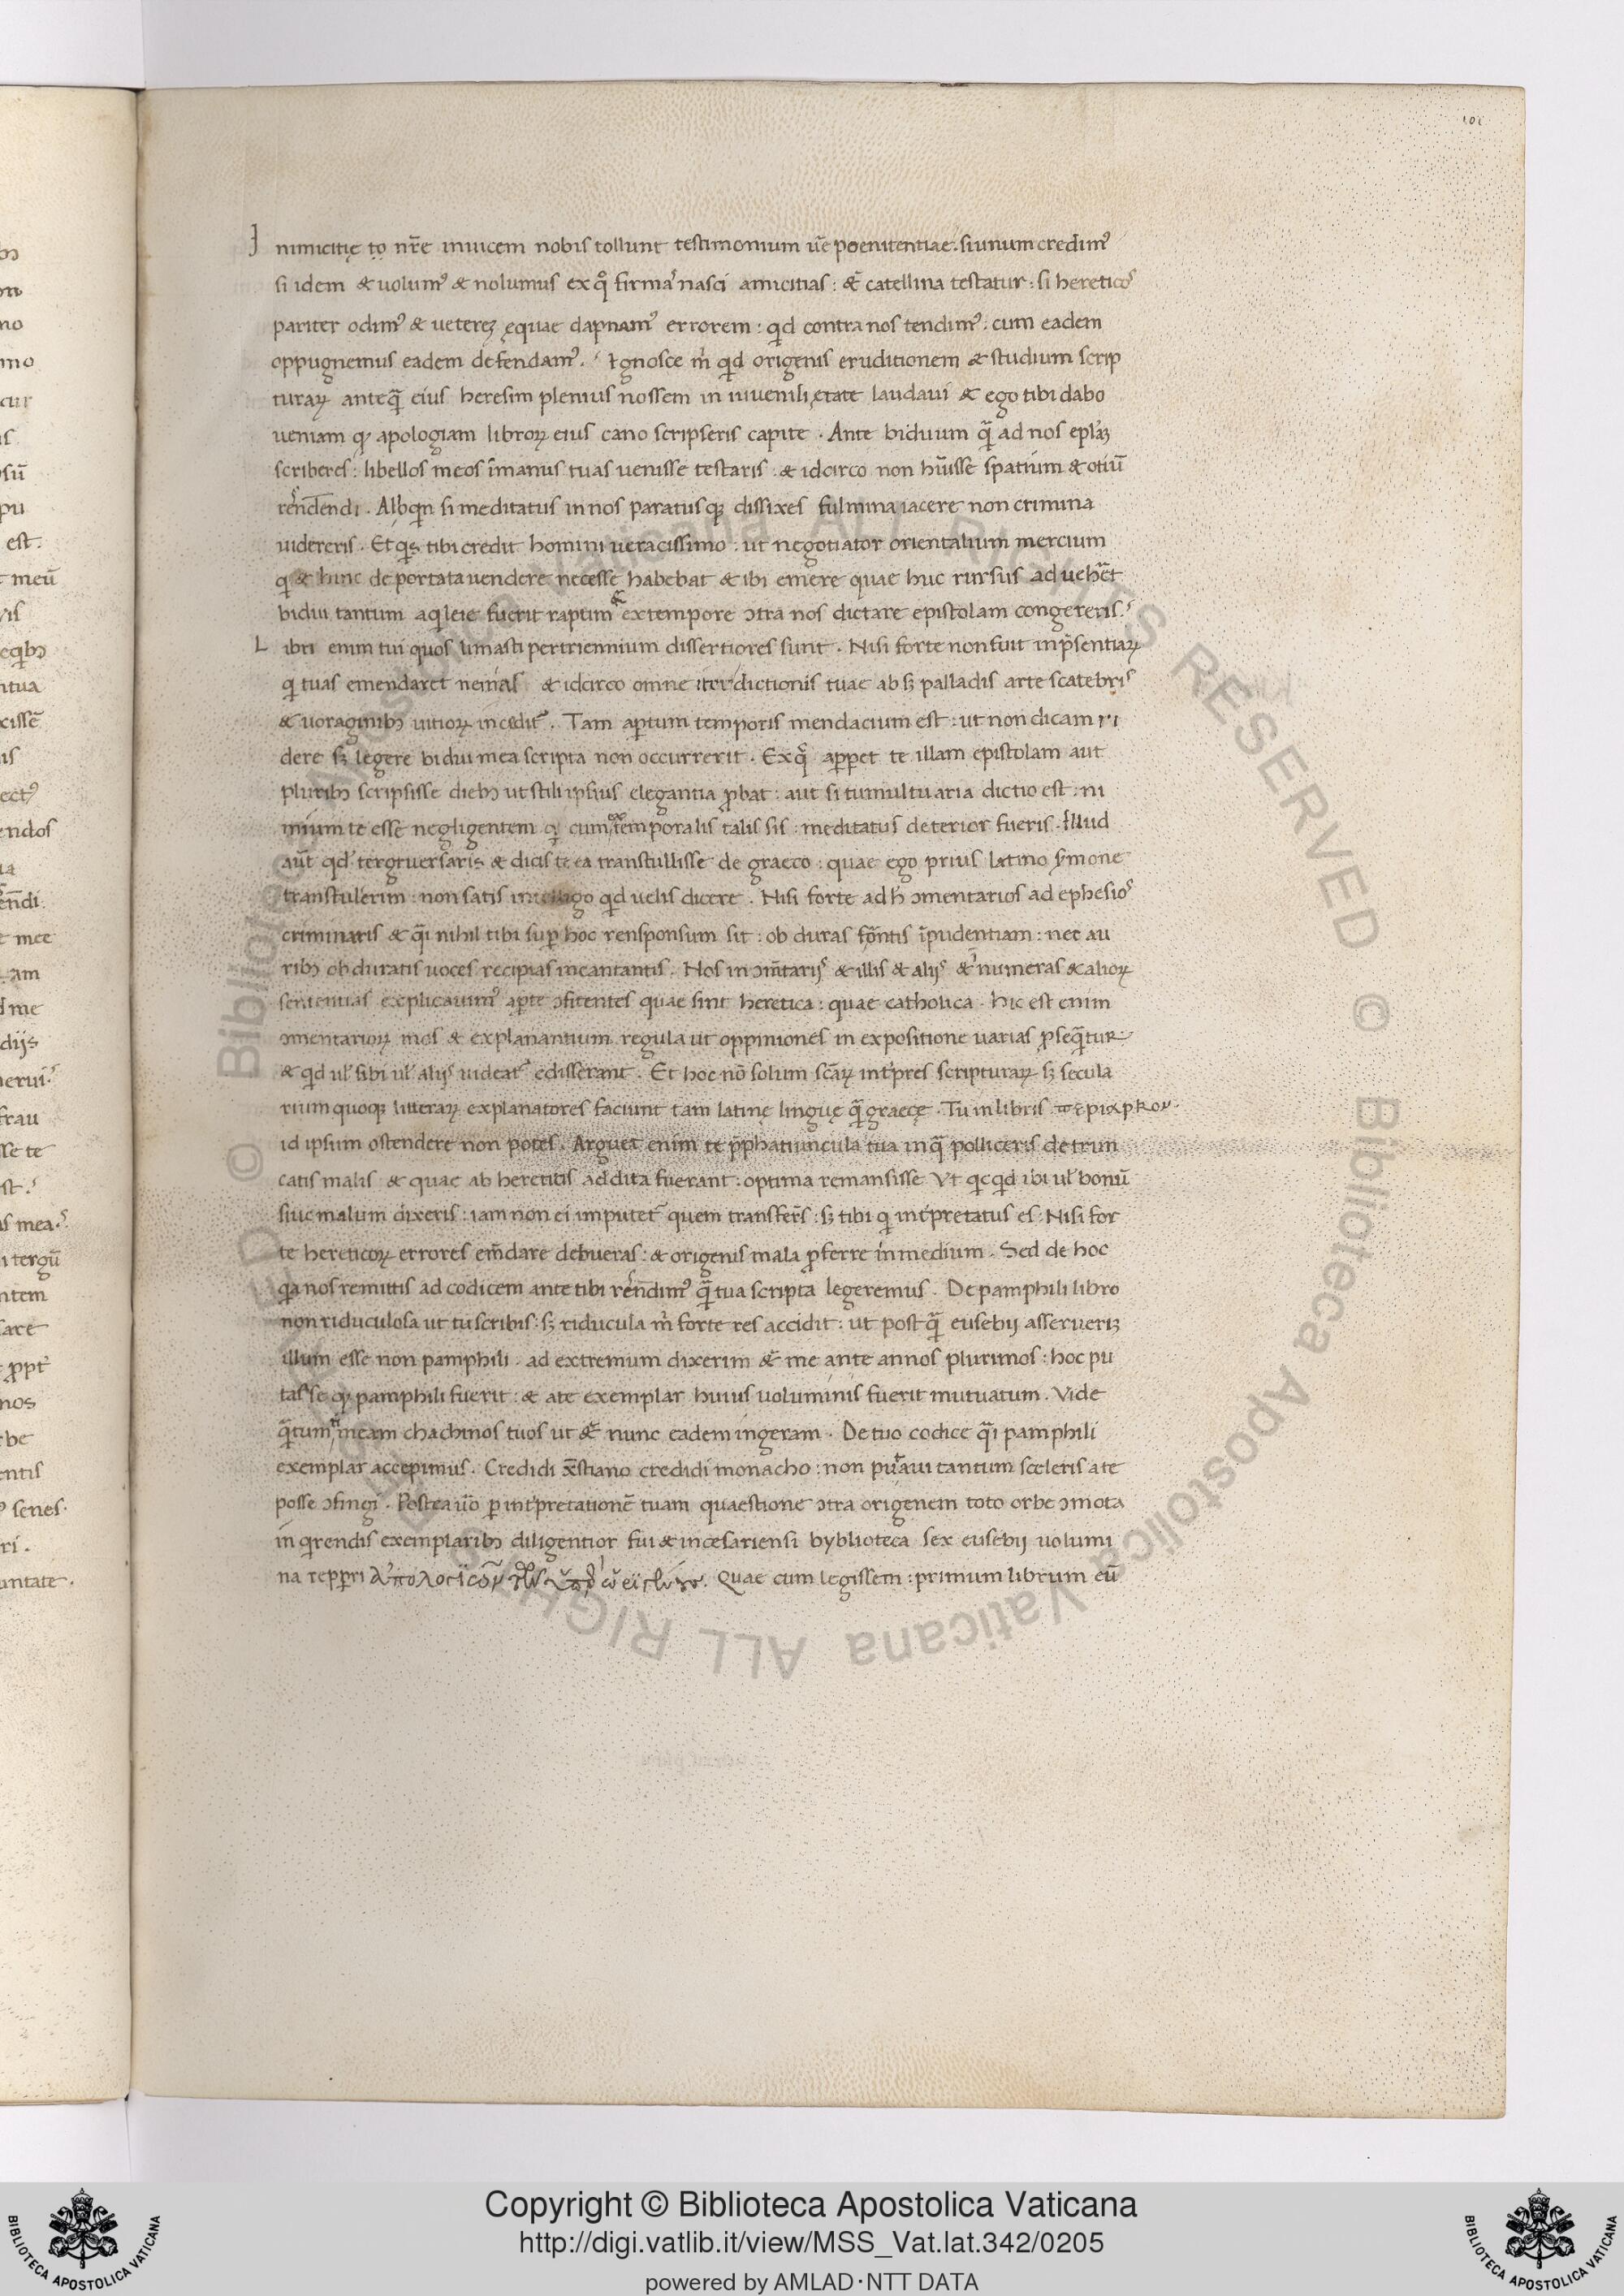 101
Inimicitię ĩo nr̃e inuicem nobis tollunt testimonium uẽ poenitentiae. si unum credimꝰ
si idem & uolumꝰ & nolumus ex qͦ firmaͬ nasci amicitias : &̃ catellina testatur : si hereticoˢ
pariter odimꝰ & ueterẽ ęquae dapnamꝰ errorem : qͥd contra nos tendimꝰ : cum eadem
oppugnemus eadem defendamꝰ. Ignosce mͥ qͥd origenis eruditionem & studium scrip
turaꝝ anteqͣ̃ eius heresim plenius nossem in iuuenili ętate laudaui & ego tibi dabo
ueniam qꝫ apologiam libroꝝ eius cano scripseris capite . Ante biduum qͣ̃ ad nos
scriberes : libellos meos ĩmanus tuas uenisse testaris : & idcirco non hũisse spatium & otiũ
Alioqͥn si meditatus in nos paratusqꝫ dissixes fulmina iacere non crimina
uidereris . Et qͥs tibi credit homini ueracissimo : ut negotiator orientalium mercium
qͥ & hinc deportata uendere necesse habebat & ibi emere quae huc rursus
bidui tantum aqͥleie fuerit raptim & extempore ↄtra nos dictare epistolam congereris.
Libri enim tui quos limasti pertriennium dissertiores sunt . Nisi forte non fuit inp̃sentiaꝝ
qͥ tuas emendaret nenias & idcirco omne iter dictionis tuae ab sꝫ palladis arte scatebriˢ
& uoraginibꝫ uitioꝝ inceditͬ . Tam aꝑtum temporis mendacium est : ut non dicam ri
dere sꝫ legere bidui mea scripta non occurrerit . Ex qͣ̃ aꝑpet te illam epistolam aut
pluribꝫ scripsisse diebꝫ ut stili ipsius elegantia ꝓbat : aut si tumultuaria dictio est : ni
mium te esse negligentem qͥ cum extemporalis talis sis : meditatus deterior fueris . Illud
aũt qd̃ tergiuersaris & dicis te ea transtullisse de graeco : quae ego prius latino ẽmone
transtulerim : non satis intelligo qͥd uelis dicere . Nisi forte adh̃ ↄmentarios ad ephesioˢ
criminaris & qͣ̃i nihil tibi suꝑ hoc rensponsum sit : ob duras frõntis ĩpudentiam : nec au
ribꝫ obduratis uoces recipias incantantis . Nos in ↄm̃tarijˢ & illis & alijˢ & nr̃as & alioꝝ
sententias explicauimꝰ aꝑte ↄfitentes quae sint heretica : quae catholica . hic est enim
ↄmentarioꝝ mos & explanantium regula ut oppiniones in expositione uarias ꝓseqͣ̃tur
& qͥd ul̃ sibi ul̃ alijˢ uideatͬ edisserant . Et hoc nõ solum scãꝝ inťpres scripturaꝝ sꝫ secula
rium quoqꝫ litteraꝝ explanatores faciunt tam latinę linguę qͣ̃ graecę . Tu in libris περιαρκον.
id ipsum ostendere non potes . Arguet enim te p̃phatiuncula tua inqͣ polliceris detrun
catis malis & quae ab heretitis addita fuerant : optima remansisse Vt qͥcqͥd ibi ul̃ bonũ
siue malum dixeris : iam non ei imputetͬ quem transferˢ : sꝫ tibi qͥ inťpretatus es : Nisi for
te hereticoꝝ errores em̃dare debueras : & origenis mala ꝓferre in medium . Sed de hoc
qͥa nos remittis ad codicem ante tibi rñdimꝰ qͣ̃ tua scripta legeremus . De pamphili libro
non riduculosa ut tu scribis : sꝫ ridicula mͥ forte res accidit : ut postqͣ̃ eusebij asseruerĩ
illum esse non pamphili . ad extremum dixerim &̃ me ante annos plurimos : hoc pu
tasse qꝫ pamphili fuerit : & ate exemplar huius uoluminis fuerit mutuatum . Vide
qͣ̃tum meam chachinos tuos ut &̃ nunc eadem ingeram . De tuo codice qͣ̃i pamphili
exemplar accepimus . Credidi x̃stiano credidi monacho : non putaui tantum sceleris ate
posse ↄfingi . Postea ũo ꝑ inťpretationẽ tuam quaestione ↄtra origenem toto orbe ↄmota
in qͥrendis exemplaribꝫ diligentior fui & in cesariensi byblioteca sex eusebij uolumi
na repꝑi Quae cum legissem : primum librum eũ
Copyright © Biblioteca Apostolica Vaticana
http://digi.vatlib.it/view/MSS_Vat.lat.342/0205
powered by AMLAD·NTT DATA